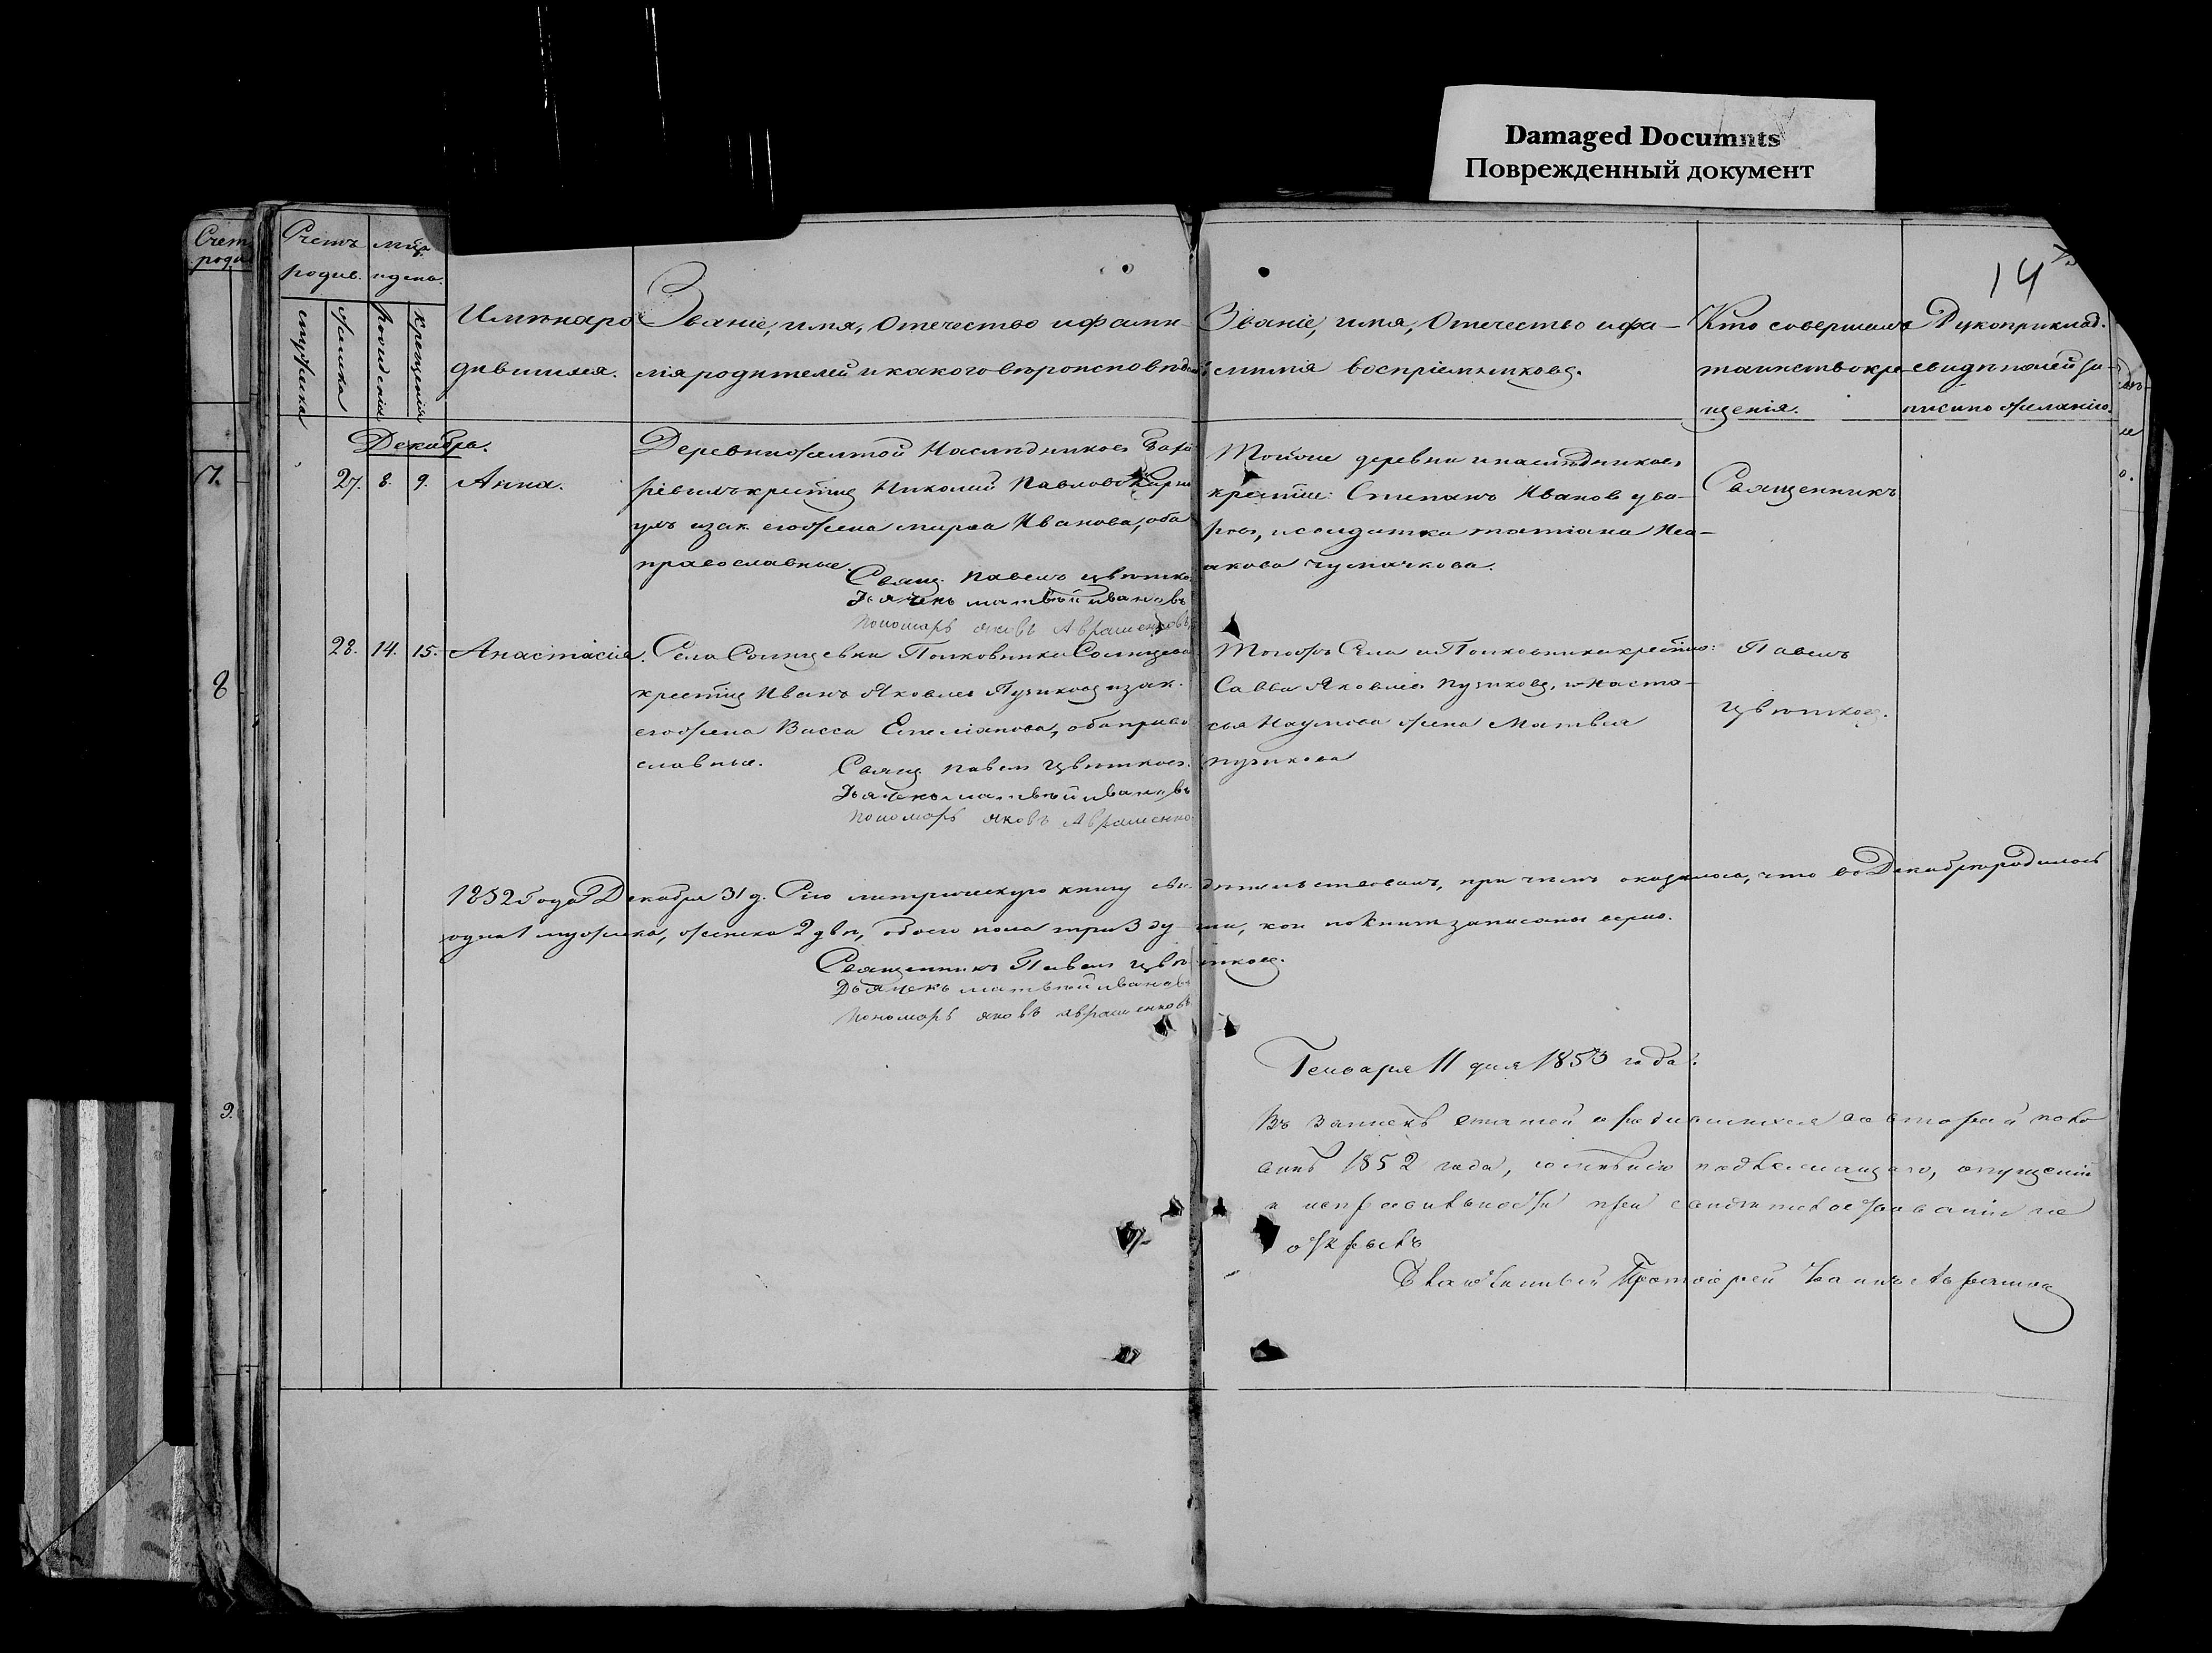 Damaged Documnts
Поврежденный документ
14
Счет
роди
Счетъ
родив.
мцъ
и день.
мужеска
женска
рожденія
крещенія
Имѣна ро
дившихся.
Званіе, имя, Отечество и фами-
лія родителей и какого вѣроисповѣд
Званіе, имя, Отечество и фа-
милія воспріемниковъ.
Кто совершалъ
таинство кре
щенія.
Рукоприклад.
свидѣтелей за-
писи по желанію.
Декабрь.
7.
27. 8. 9. Анна.
Деревни Желтой Наслѣдниковъ
крестья Николай Павловъ
и зак. его жена Марѳа Иванова, оба
православные.
Свящ. Павелъ Цвѣтко
Дьячекъ Матвѣй Ивановъ
Пономарь Яковъ Авраменковъ
Тойже деревни и наслѣдниковъ
крестья: Степанъ Ивановъ Ува-
ровъ, и солдатка Татіана Иса-
акова Чумачкова.
Священникъ
Павелъ
Цвѣтковъ.
8
28. 14. 15. Анастасія.
Села Солнцевки Полковника Солнцева
крестья Иванъ Яковлевъ Пузиковъ и зак.
его жена Васса Емеліянова, оба право
славные.
Свящ. Павелъ Цвѣтковъ.
Дьячекъ Матвѣй Ивановъ
Пономарь Яковъ Авраменко
Тогожъ Села и Полковника крестья:
Савва Яковлевъ Пузиковъ, и Наста-
сья Наумова жена Матвея
Пузикова
1852 года Декабря 31 д. Сію метрическую книгу свидѣтельствовалъ, при чемъ оказалось, что въ Декабрѣ родилось
одна 1 мужеска, женска 2 двѣ, обоего пола три 3 души, кои по книгѣ записаны вѣрно.
Священникъ Павелъ Цвѣтковъ.
Дьячекъ Матвѣй Ивановъ
Пономарь Яковъ Авраменковъ
9.
Генваря 11 дня 1853 года:
Въ запискѣ статей о родившихся во второй поло
винѣ 1852 года, подлежащаго, опущеній
и неправильности при свидѣтельствованіи не
открылъ
Благочинный Протоіерей Іоаннъ Абрамовъ